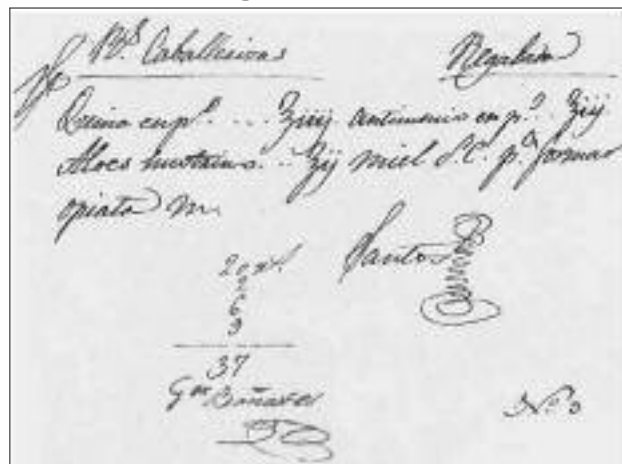 Rs. Caballerivas Regalada
Quina en po. ... ʒiiij antimonio en po. ʒiij
Aloes ... ʒij miel S.C. pa. formar
opiata m.
Santos
20 rs.
2
6
9
37
Bañares
No. 3